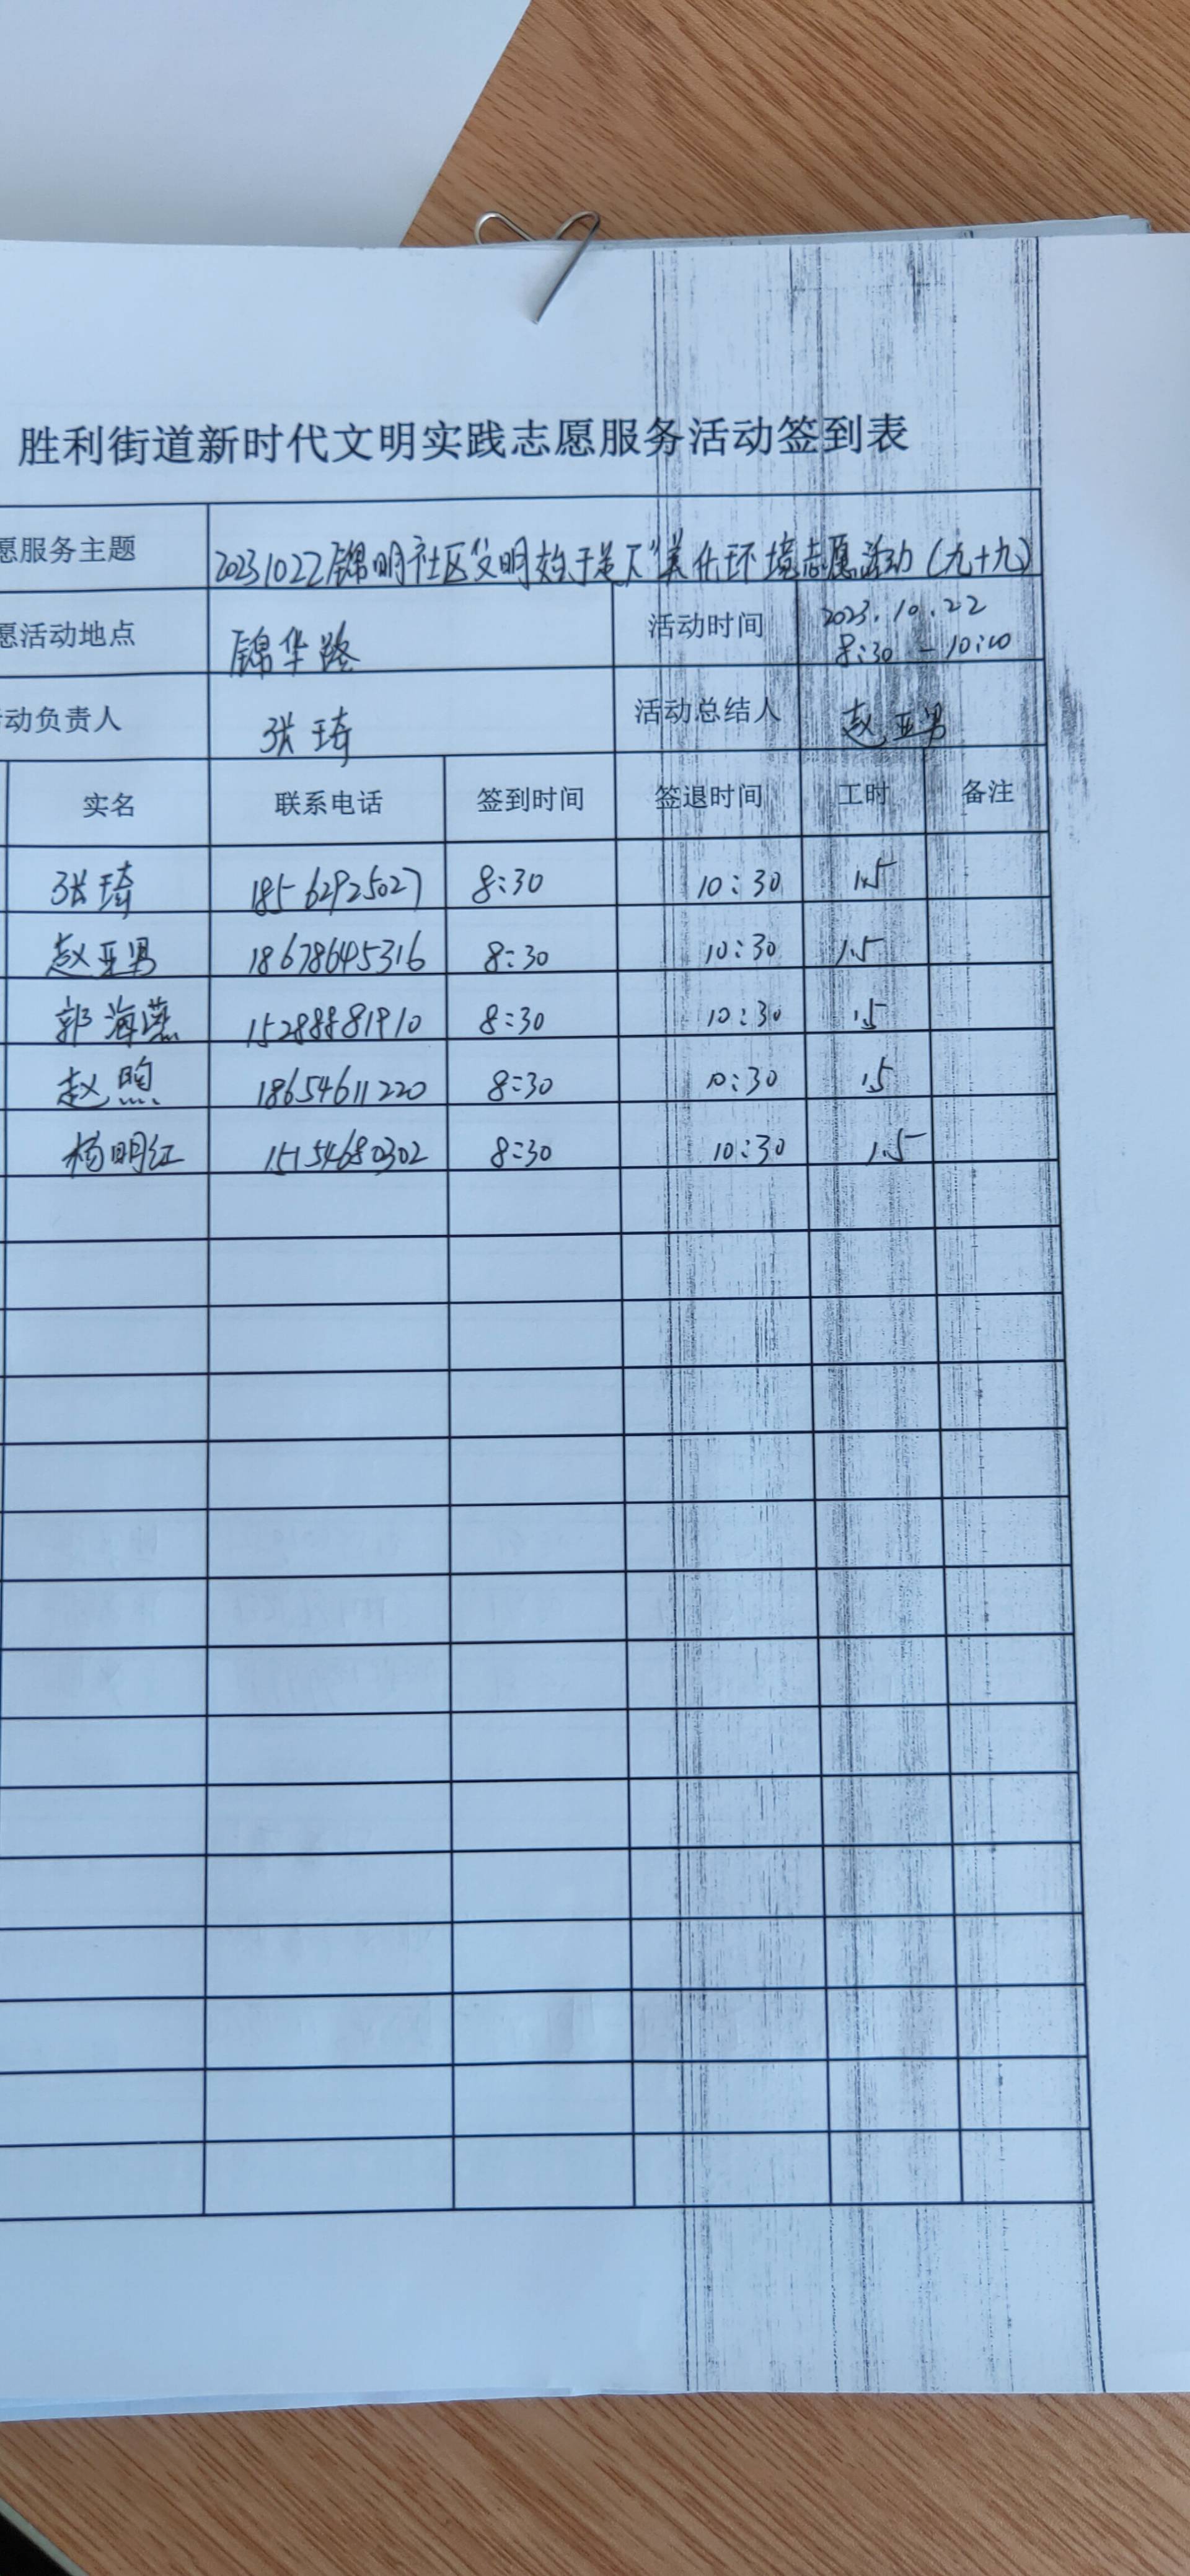 胜利街道新时代文明实践志愿服务活动签到表
愿服务主题 20231022锦明社区"文明始于足下"美化环境志愿活动(九十九)
愿活动地点 锦华路 活动时间 2023.10.22
8:30 - 10:00
动负责人 张琦 活动总结人 赵亚男
实名 联系电话 签到时间 签退时间 工时 备注
张琦 18562925027 8:30 10:30 1.5
赵亚男 18678645316 8:30 10:30 1.5
郭海燕 15288881910 8:30 10:30 1.5
赵煦 18654611220 8:30 10:30 1.5
杨明红 15154680302 8:30 10:30 1.5